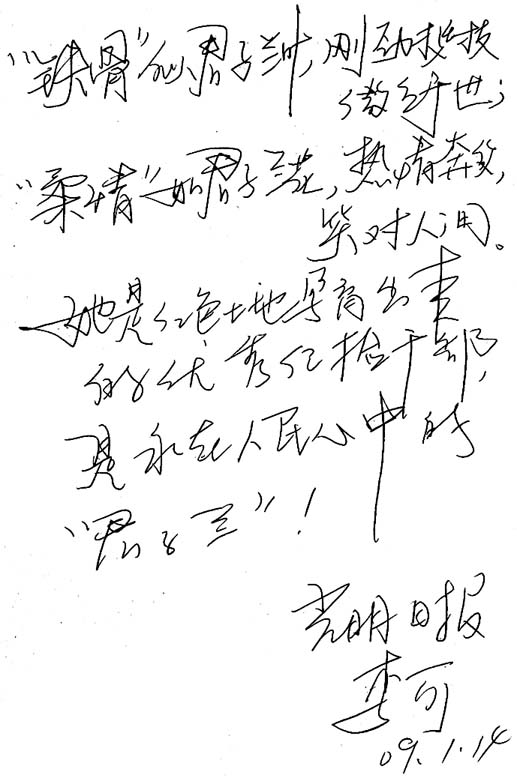 “铁骨”似君子兰叶,刚劲挺拔
傲 世;
“柔情”如君子兰花,热情奔放,
笑对人间。
她是红色土地孕育出来
的优秀纪检干部,
是永在人民心中的
“君子兰”!
光明日报
李可
09.1.14